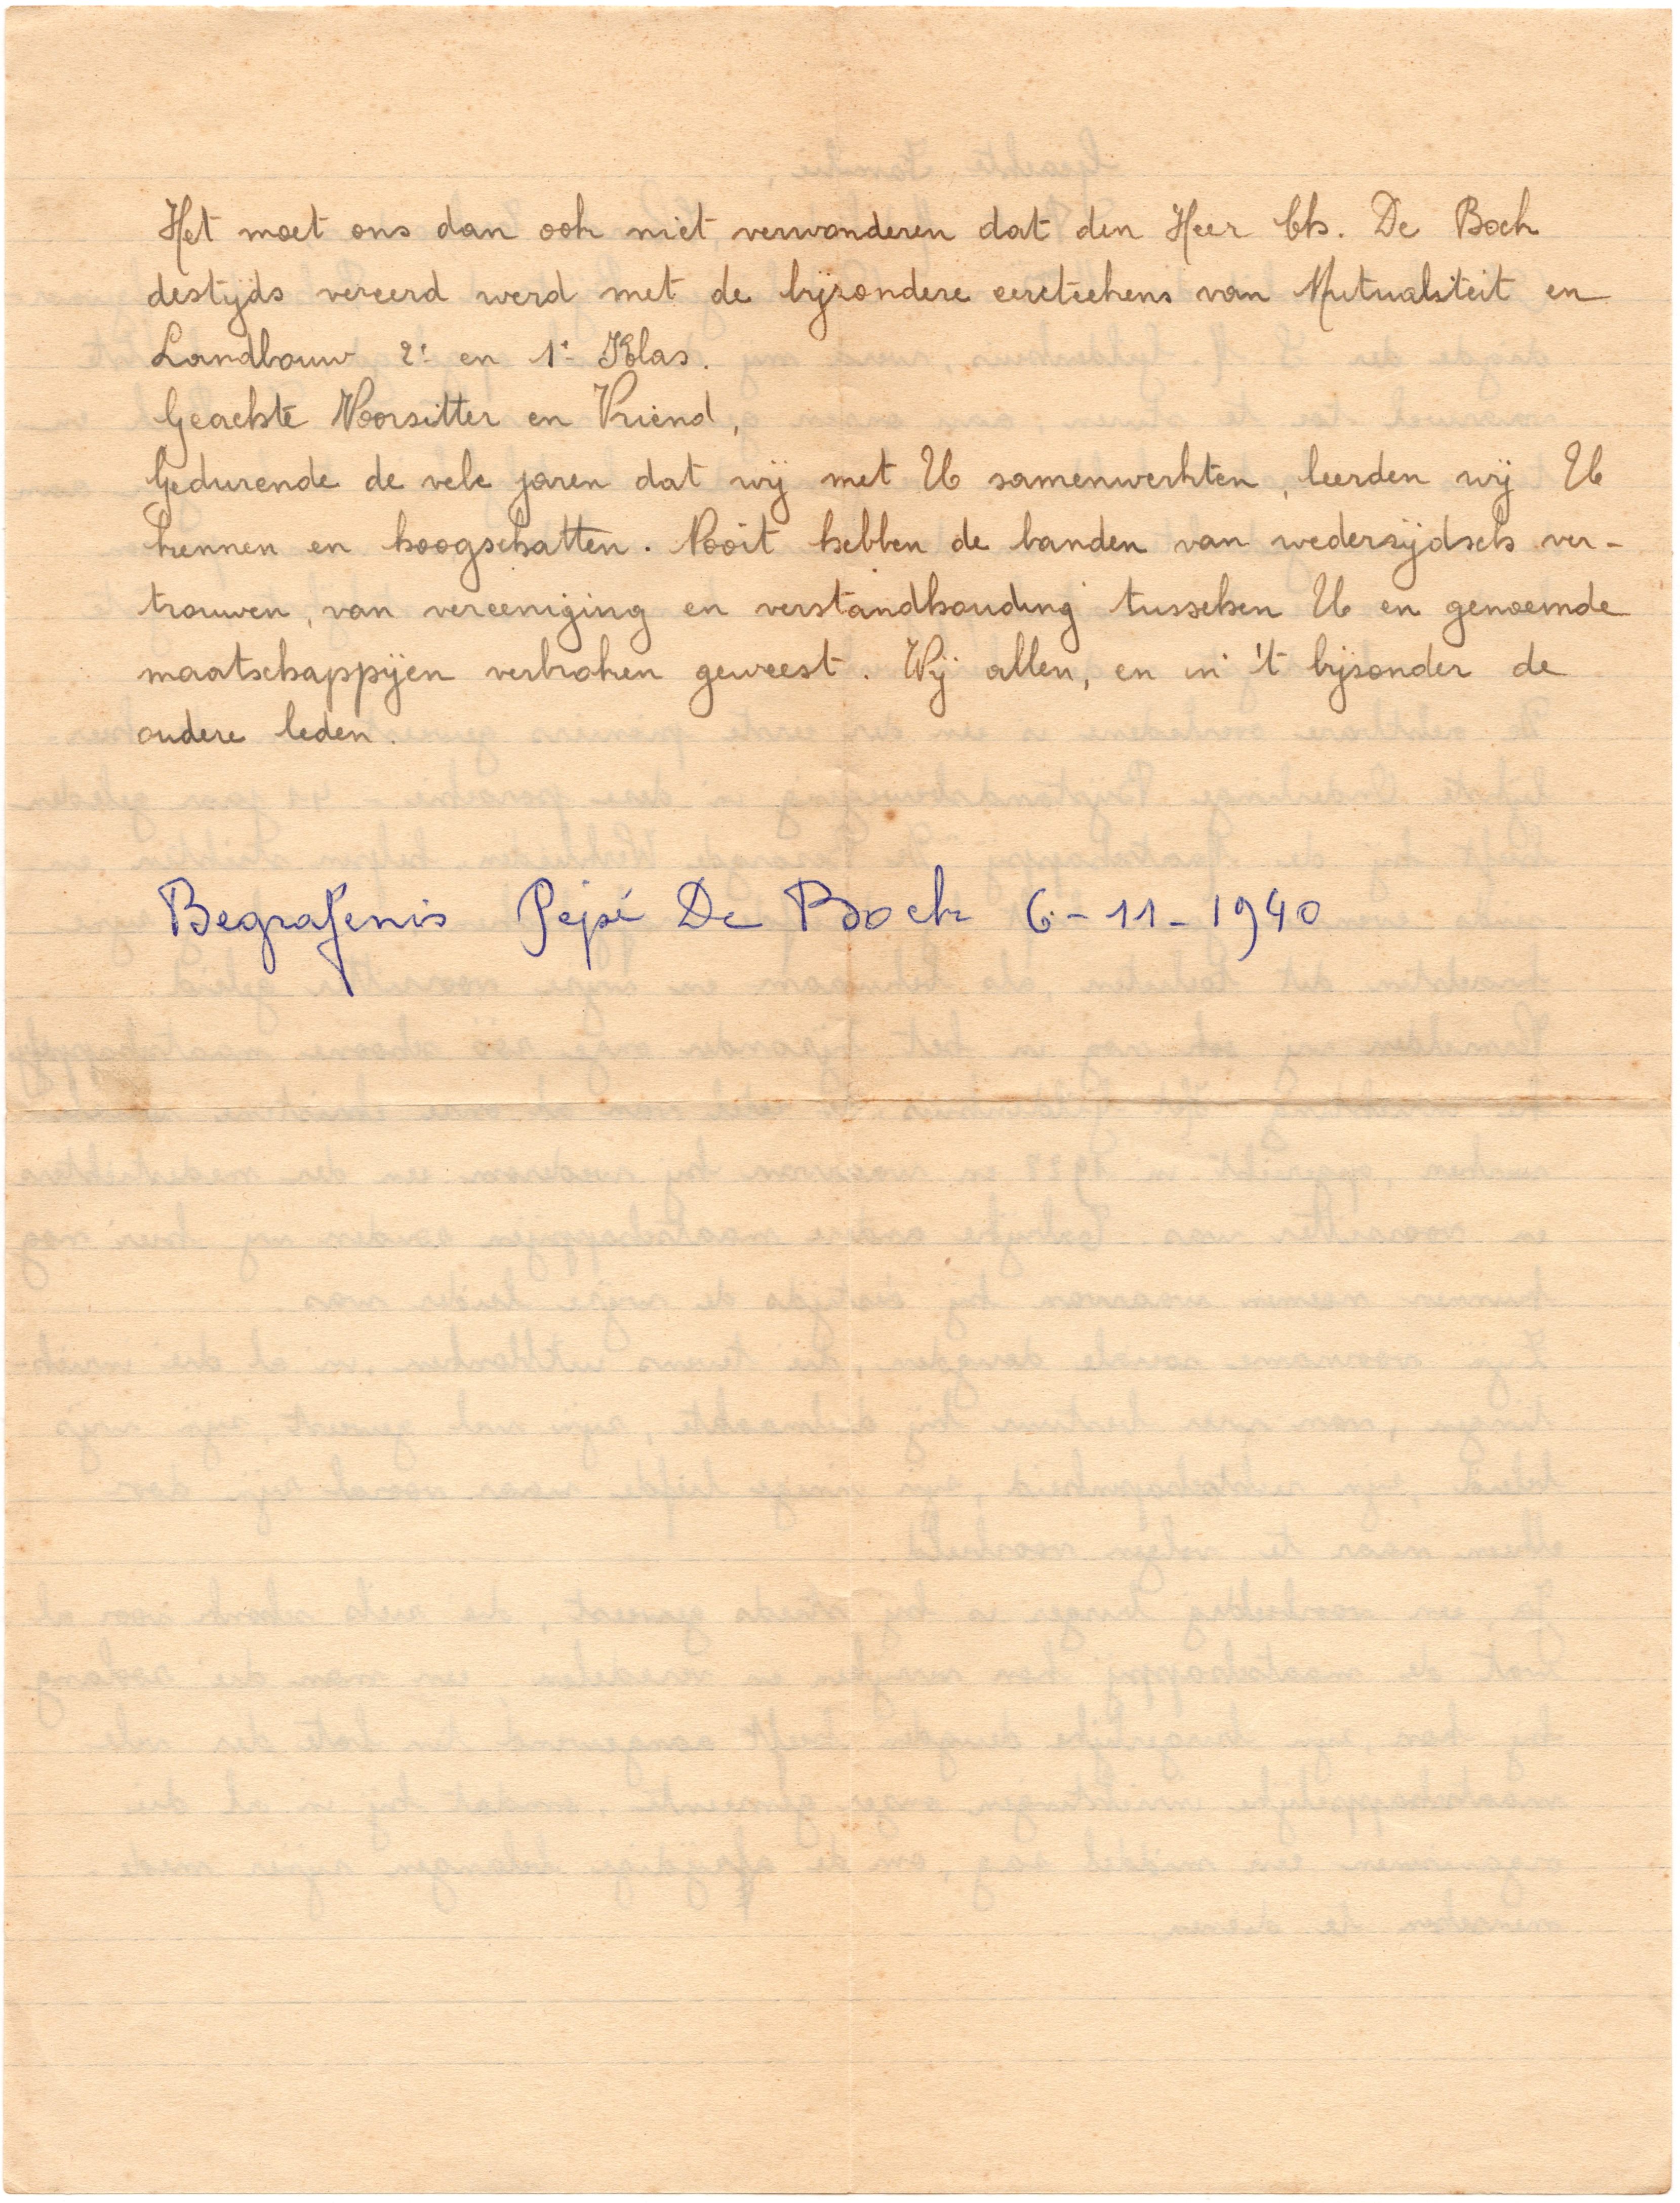 Het moet ons dan ook niet verwonderen dat den Heer Ch. De Bock
destijds vereerd werd met de bijzondere eereteekens van Mutualiteit en
Landbouw 2e en 1e Klas.
Geachte Voorzitter en Vriend,
Gedurende de vele jaren dat wij met U samenwerkten, leerden wij U
kennen en hoogschatten. Nooit hebben de banden van wederzijdsch ver-
trouwen, van vereeniging en verstandhouding tusschen U en genoemde
maatschappijen verbroken geweest. Wij allen, en in 't bijzonder de
oudere leden.
Begrafenis Pepé De Bock 6-11-1940